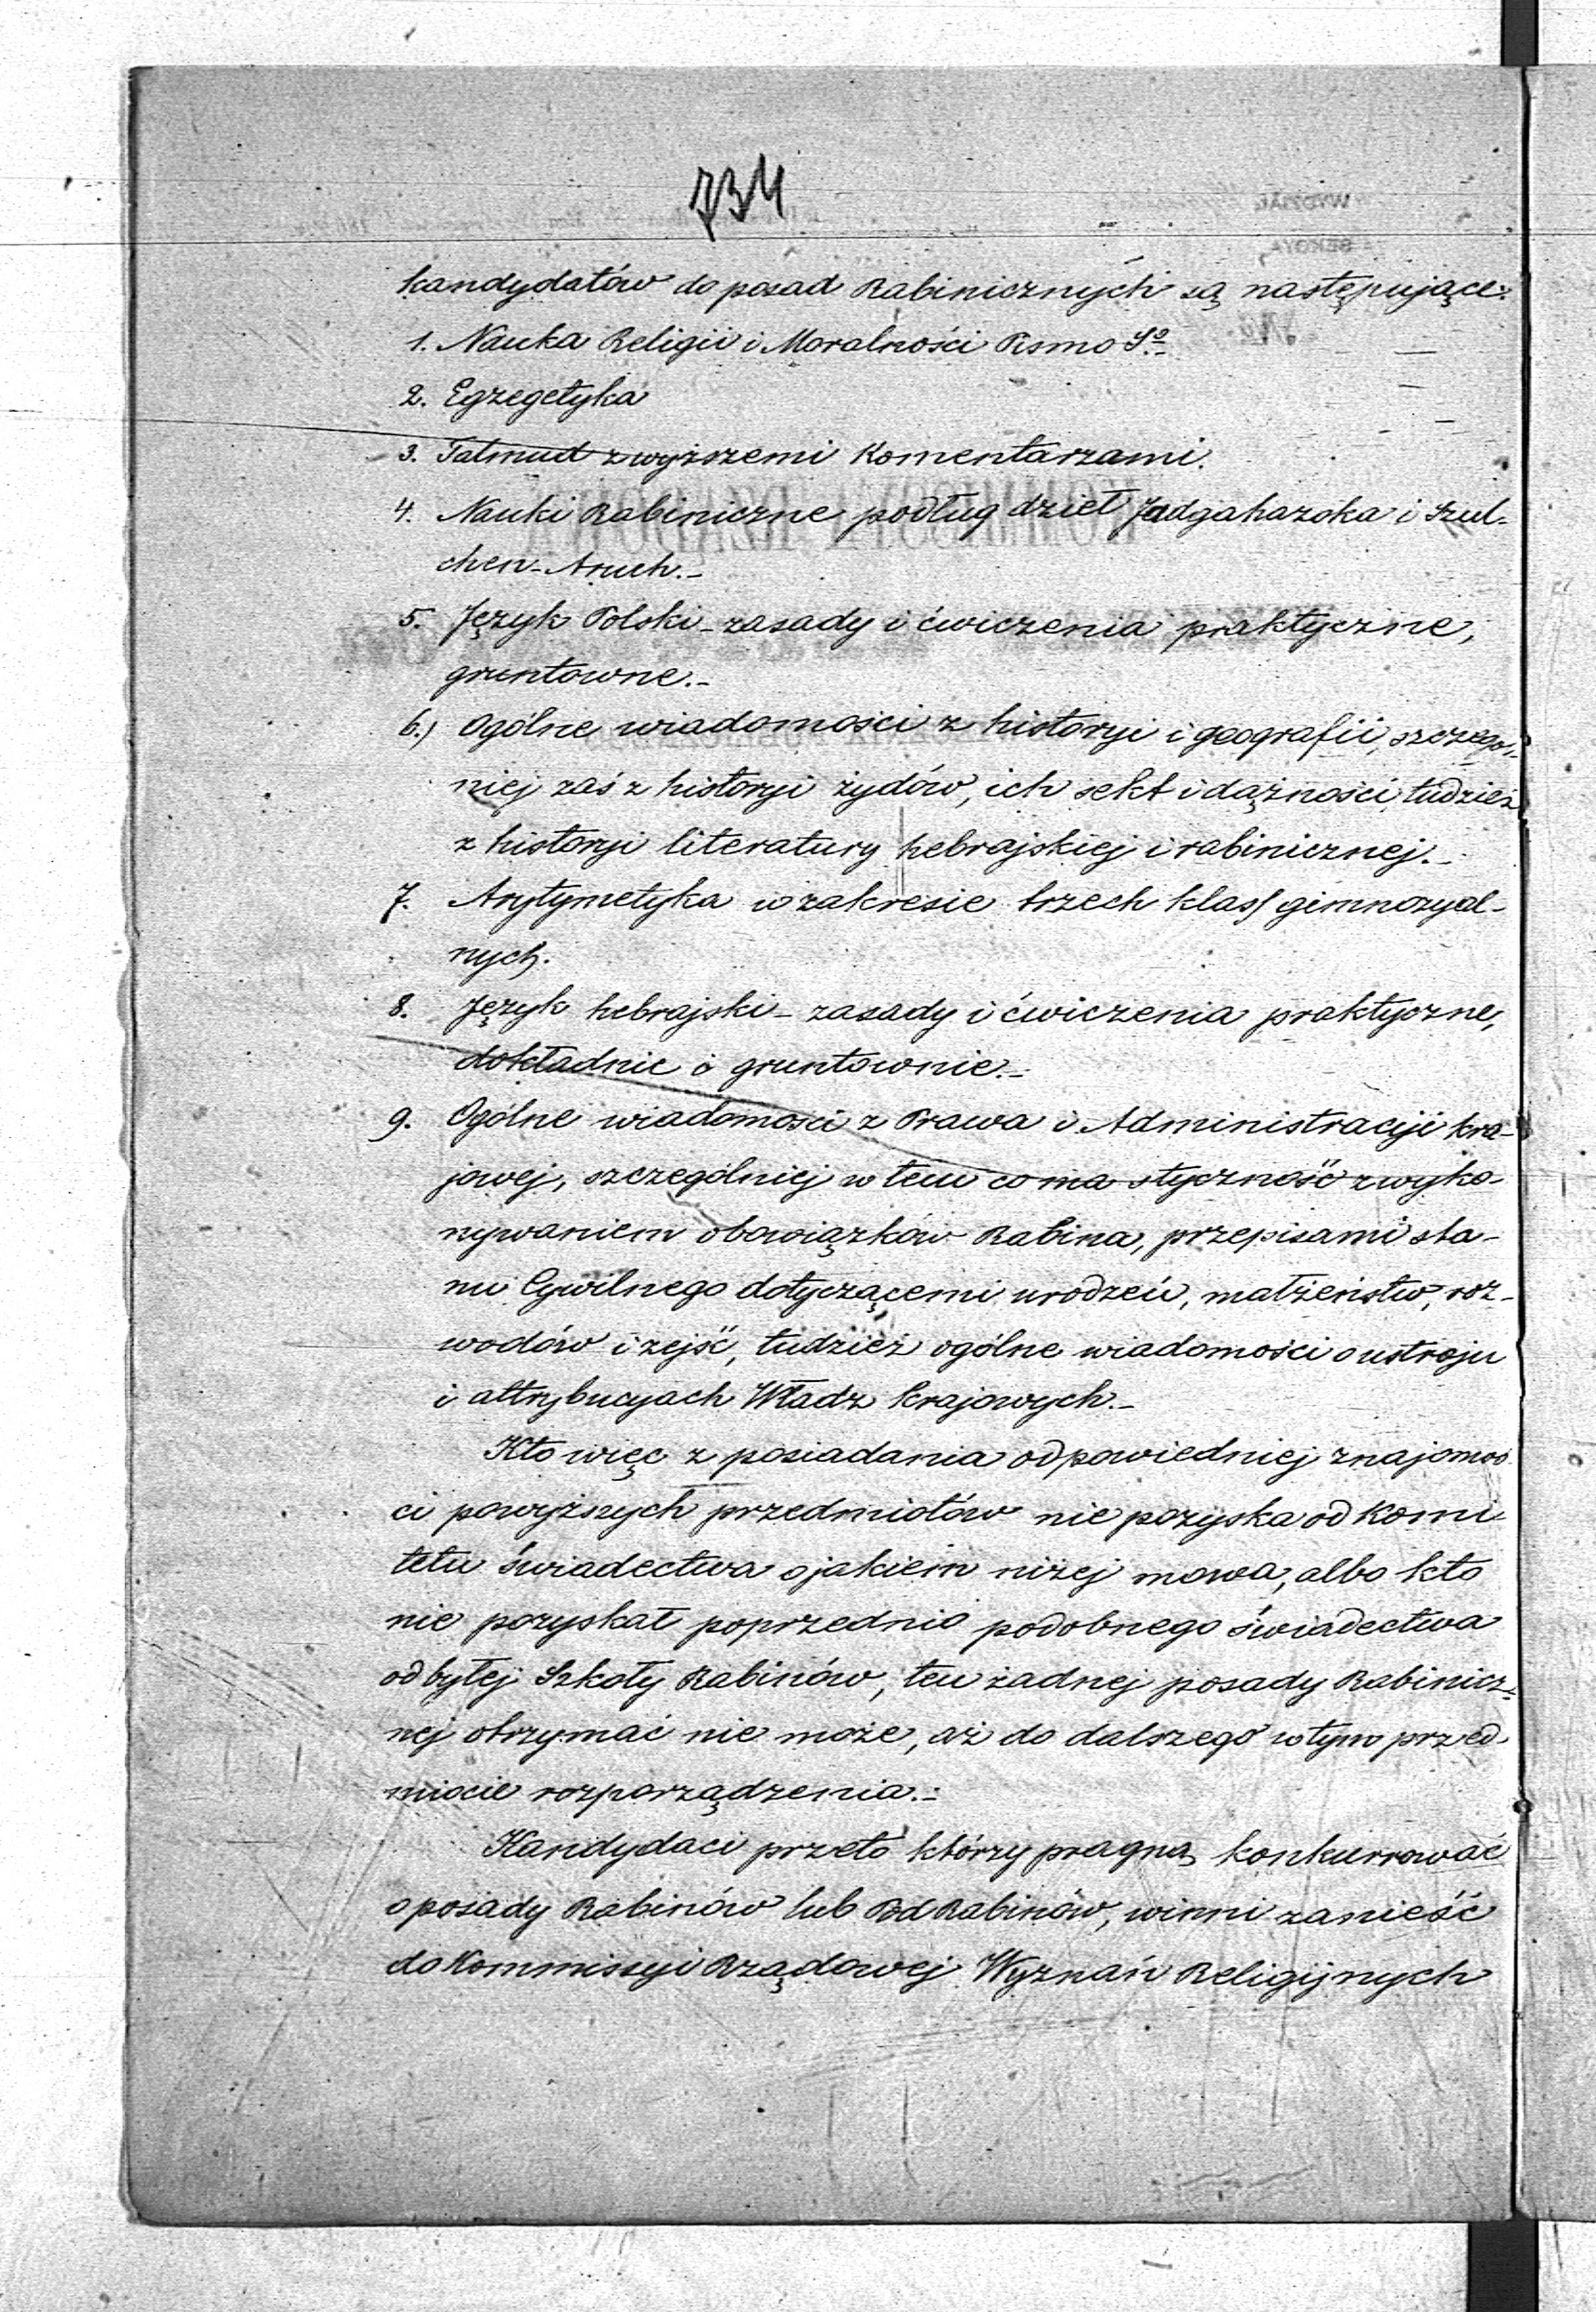 734
kandydatów do posad Rabinicznych są następujące:
1. Nauka Religii i Moralności Pismo Sº
2. Egzegetyka
3. Talmud z wyższemi Komentarzami.
4. Nauki Rabiniczne podług dzieł Jadgahazaka i Szul-
chen-Aruch.-
5. Język Polski - zasady i ćwiczenia praktyczne,
gruntowne.-
6.) Ogólne wiadomości z historyi i geografii, szczegól-
niej zaś z historyi żydów, ich sekt i dążności, tudzież
z historyi literatury hebrajskiej i rabinicznej.-
7. Arytymetyka w zakresie trzech klass gimnazyal-
nych.
8. Język hebrajski - zasady i ćwiczenia praktyczne,
dokładnie i gruntownie.-
9. Ogólne wiadomości z Prawa i Administracyi kra-
jowej, szczególniej w tem co ma styczność z wyko-
nywaniem obowiązków Rabina, przepisami sta-
nu Cywilnego dotyczącemi urodzeń, małżeństw, roz-
wodów i zejść, tudzież ogólne wiadomości o ustroju
i attrybucyach Władz Krajowych.-
Kto więc z posiadania odpowiedniej znajomoś
ci powyższych przedmiotów nie pozyska od Komi-
tetu świadectwa o jakiem niżej mowa, albo kto
nie pozyskał poprzednio podobnego świadectwa
od byłej Szkoły Rabinów, ten żadnej posady Rabinicz-
nej otrzymać nie może, aż do dalszego w tym przed-
miocie rozporządzenia.-
Kandydaci przeto którzy pragną konkurrować
o posady Rabinów lub Pod Rabinów, winni zanieść
do Kommissyi Rządowej Wyznań Religijnych